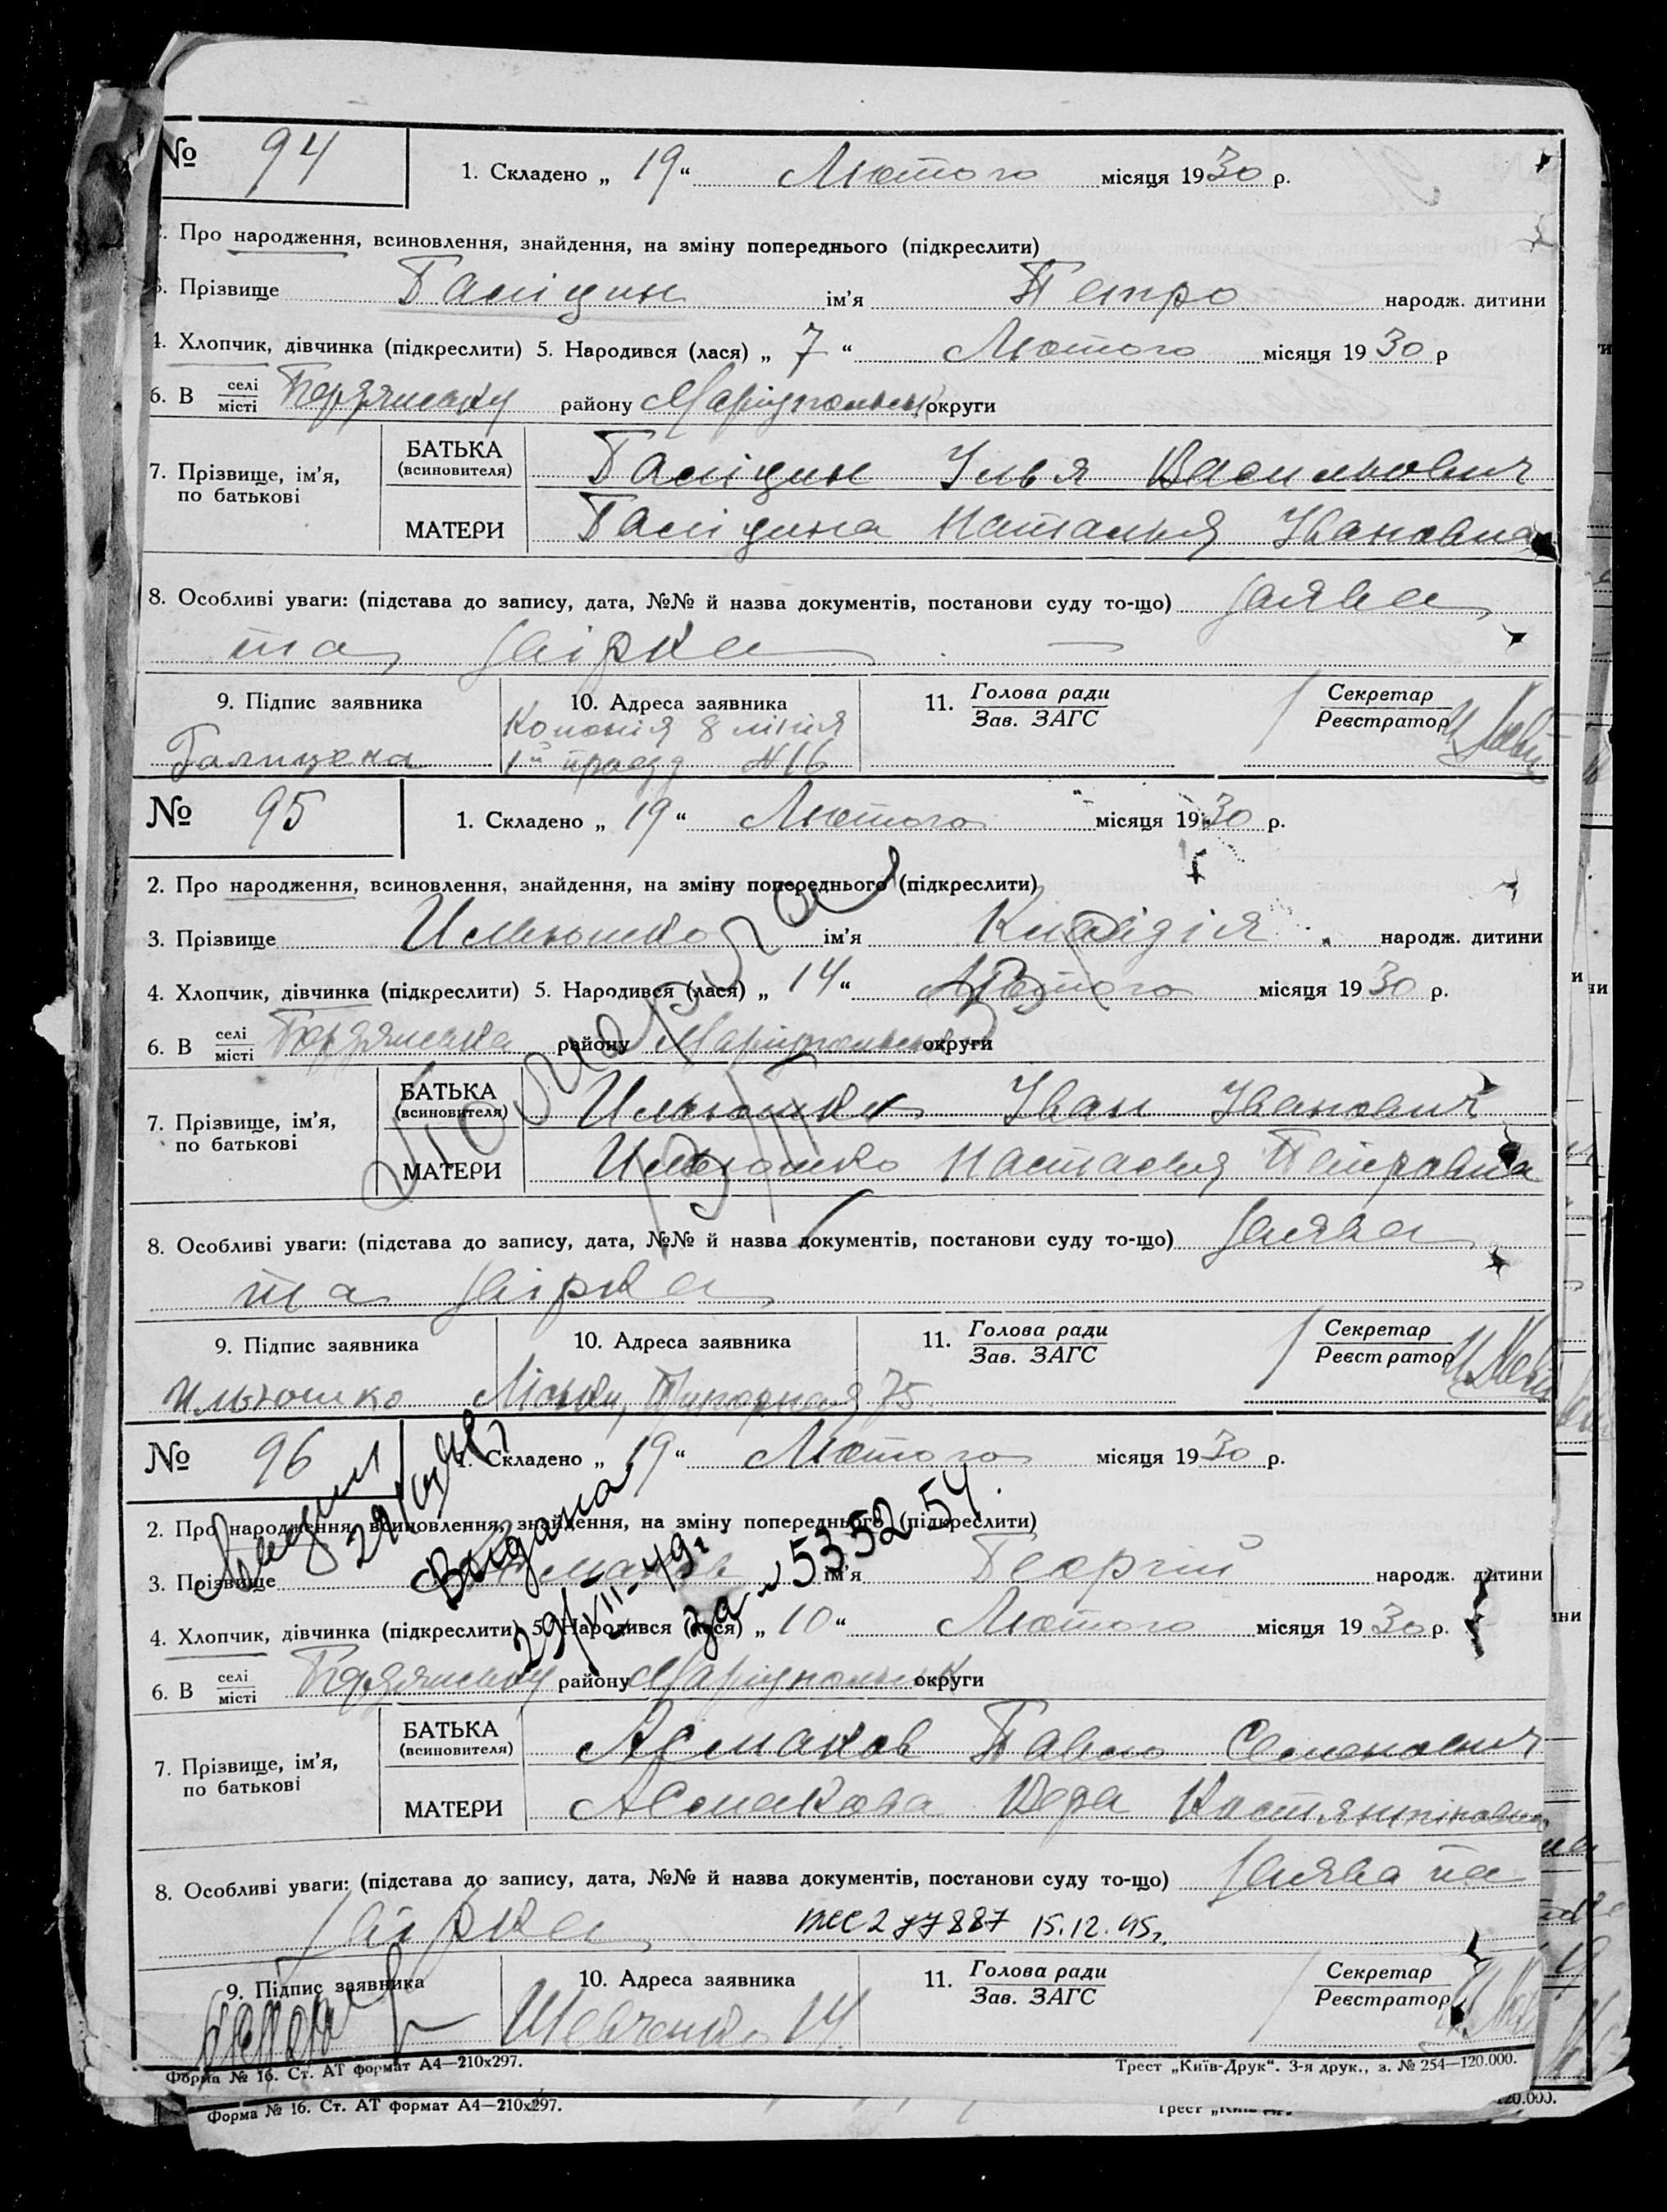 № 94 1. Складено „ 19 “ Лютого місяця 1930 р.
2. Про народження, всиновлення, знайдення, на зміну попереднього (підкреслити)
3. Прізвище Галіцин ім'я Петро народж. дитини
4. Хлопчик, дівчинка (підкреслити) 5. Народився (лася) „ 7 “ Лютого місяця 1930 р
6. В селі/місті Бердянську району Маріупольськ округи
7. Прізвище, ім'я, по батькові
БАТЬКА (всиновителя) Галіцин Ілья Васильович
МАТЕРИ Галіцина Наталья Івановна
8. Особливі уваги: (підстава до запису, дата, №№ й назва документів, постанови суду то-що) заява
та завірка
9. Підпис заявника 10. Адреса заявника 11. Голова ради/Зав. ЗАГС Секретар/Реєстратор
Колонія 8 лінія
Галицена 1й проезд №16
№ 95 1. Складено „ 19 “ Лютого місяця 1930 р.
2. Про народження, всиновлення, знайдення, на зміну попереднього (підкреслити)
3. Прізвище Ильюшко ім'я Клавдія народж. дитини
4. Хлопчик, дівчинка (підкреслити) 5. Народився (лася) „ 14 “ Лютого місяця 1930 р.
6. В селі/місті Бердянська району Маріупольськ округи
7. Прізвище, ім'я, по батькові
БАТЬКА (всиновителя) Ильюшко Іван Іванович
МАТЕРИ Ильюшко Настасья Петровна
8. Особливі уваги: (підстава до запису, дата, №№ й назва документів, постанови суду то-що) заява
та завірка
9. Підпис заявника 10. Адреса заявника 11. Голова ради/Зав. ЗАГС Секретар/Реєстратор
Ильюшко Лиски, Нагорная 75.
№ 96 1. Складено „ 19 “ Лютого місяця 1930 р.
2. Про народження, всиновлення, знайдення, на зміну попереднього (підкреслити)
3. Прізвище Асманов ім'я Георгій народж. дитини
Выдана
29/VII-49г
за № 5352-54.
4. Хлопчик, дівчинка (підкреслити) 5. Народився (лася) „ 10 “ Лютого місяця 1930 р.
6. В селі/місті Бердянську району Маріупольськ округи
7. Прізвище, ім'я, по батькові
БАТЬКА (всиновителя) Асманов Павло Семенович
МАТЕРИ Асмакова Вера Костянтіновна
8. Особливі уваги: (підстава до запису, дата, №№ й назва документів, постанови суду то-що) заява та
завірка 277887 15.12.95г.
9. Підпис заявника 10. Адреса заявника 11. Голова ради/Зав. ЗАГС Секретар/Реєстратор
Шевченко 14
Форма № 16. Ст. АТ формат А4—210х297. Трест „Київ-Друк“. 3-я друк., з. № 254—120.000.
Форма № 16. Ст. АТ формат А4—210х297. 120.000.